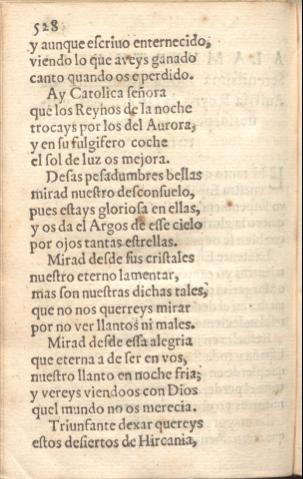 528
y aunque escriuo enternecido,
viendo lo que aveys ganado
canto quando os e perdido.
Ay Catolica señora
que los Reynos de la noche
trocays por los del Aurora,
y en su fulgifero coche
el sol de luz os mejora.
Desas pesadumbres bellas
mirad nuestro desconsuelo,
pues estays gloriosa en ellas,
y os da el Argos de esse cielo
por ojos tantas estrellas.
Mirad desde sus cristales
nuestro eterno lamentar,
mas son nuestras dichas tales,
que no nos querreys mirar
por no ver llantos ni males.
Mirad desde essa alegria
que eterna a de ser en vos,
nuestro llanto en noche fria;
y vereys viendoos con Dios
quel mundo no os merecia.
Triunfante dexar quereys
estos desiertos de Hircania,